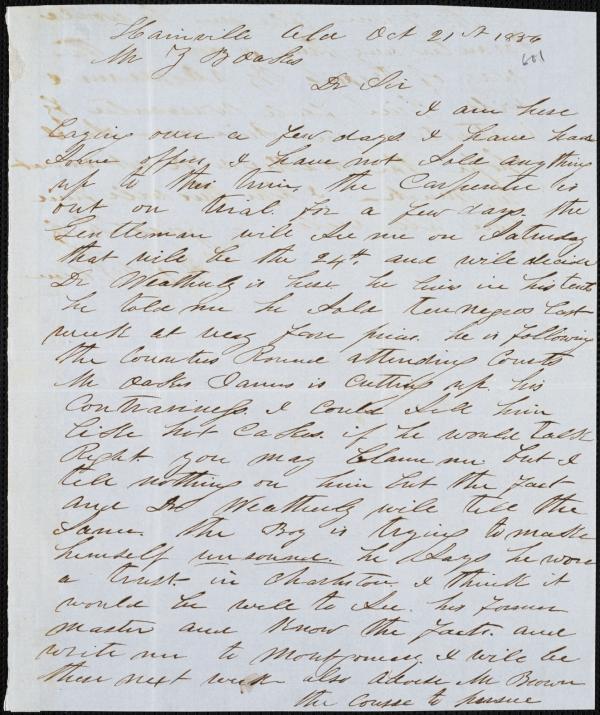 Hainville Ala Oct 21st 1856
601
Mr Z B Oakes
Dr Sir
I am here
Laying over a few days I have had
Some offers, I have not Sold anything
up to this time the Carpenter is
out on trial for a few days the
Gentleman will See me on Saturday
that will be the 24th and will decide
Dr Weatherly is here he lives in his tents
he told me he Sold ten negros last
week at very fare prices. he is following
the Counties Round attending Courts
Mr Oakes James is Cutting up his
Contrariness. I could Sell him
Like hot Cakes if he would talk
Right you may blame me but I
tell nothing on him but the fact
and Dr Weatherly will tell the
Same. the Boy is trying to make
himself unsound. he Says he wore
a trust in Charleston I think it
would be well to See his former
master and Know the facts. and
write me to Montgomery. I will be
there next week also advise Mr Brown
the course to pursue